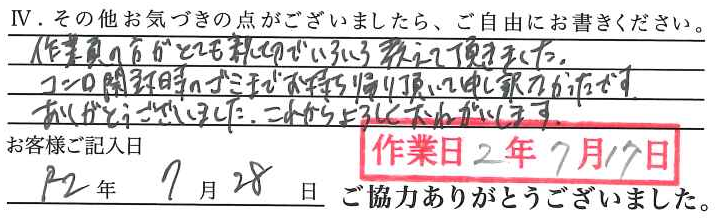 Ⅳ．その他お気づきの点がございましたら、ご自由にお書きください。
作業員の方がとても親切でいろいろ教えて頂きました。
コンロ開封時のゴミまでお持ち帰り頂いて申し訳なかったです
ありがとうございました。これからよろしくおねがいします。
お客様ご記入日
作業日 2年 7月17日
R2 年 7 月 28 日 ご協力ありがとうございました。